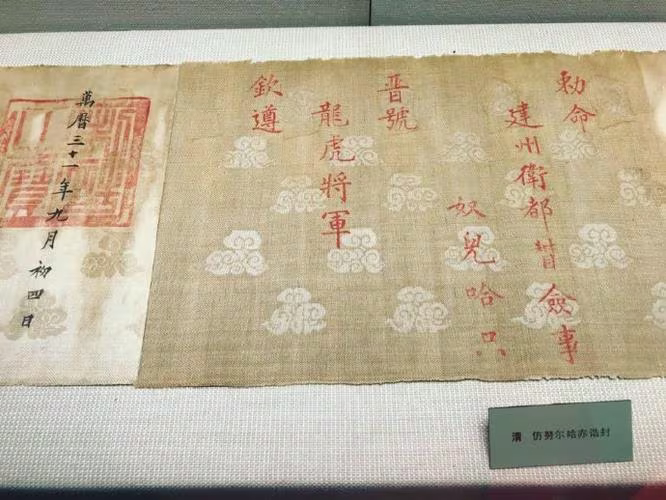 勅命
建州衛都督僉事
奴兒哈只
晋號
龍虎將軍
欽遵
萬曆三十一年九月初四日
清 仿努尔哈赤诰封